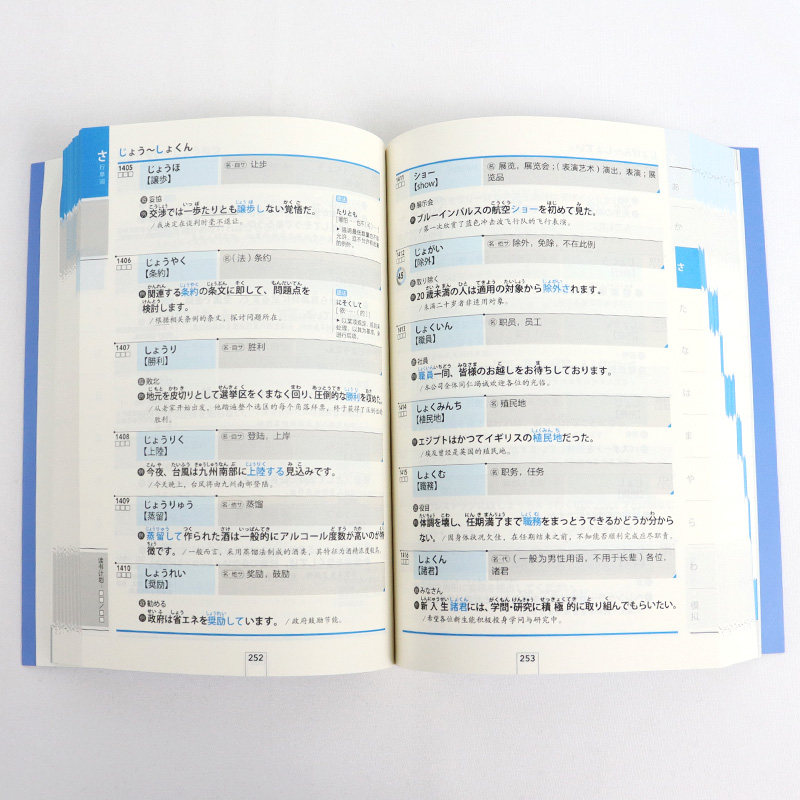 じょう～しょくん
さ
行单词
1405
じょうほ
【譲歩】
名·自サ 让步
妥協
交渉では一歩たりとも譲歩しない覚悟だ。
/我决定在谈判时毫不退让。
たりとも
1406
じょうやく
【条約】
名（法）条约
関連する条約の条文に即して、問題点を
検討します。
/根据相关条例的条文，探讨问题所在。
にそくして
1407
しょうり
【勝利】
名·自サ 胜利
敗北
地元を皮切りとして選挙区をくまなく回り、圧倒的な勝利を収めた。
/从老家开始出发，他踏遍整个选区的每个角落拜票，终于获得了压倒性的
胜利。
1408
じょうりく
【上陸】
名·自サ 登陆，上岸
今夜、台風は九州南部に上陸する見込みです。
/今天晚上，台风将由九州南部登陆。
1409
じょうりゅう
【蒸留】
名·他サ 蒸馏
蒸留して作られた酒は一般的にアルコール度数が高いのが特
徴です。
/一般而言，采用蒸馏法制成的酒类，其特征为酒精浓度较高。
1410
しょうれい
【奨励】
名·他サ 奖励，鼓励
勧める
政府は省エネを奨励しています。
/政府鼓励节能。
252
1411
ショー
【show】
名 展览，展览会；（表演艺术）演出，表演；展
览品
展示会
ブルーインパルスの航空ショーを初めて見た。
/第一次欣赏了蓝色冲击波飞行队的飞行表演。
1412
45
じょがい
【除外】
名·他サ 除外，免除，不在此例
取り除く
20歳未満の人は適用の対象から除外されます。
/未满二十岁者非适用对象。
1413
しょくいん
【職員】
名 职员，员工
社員
職員一同、皆様のお越しをお待ちしております。
/本公司全体同仁竭诚欢迎各位的光临。
1414
しょくみんち
【植民地】
名 殖民地
エジプトはかつてイギリスの植民地だった。
/埃及曾经是英国的殖民地。
1415
しょくむ
【職務】
名 职务，任务
役目
体調を壊し、任期満了まで職務をまっとうできるかどうか分から
ない。
/因身体状况欠佳，在任期结束之前，不知能否顺利完成应尽职责。
1416
しょくん
【諸君】
名·代（一般为男性用语，不用于长辈）各位，
诸君
みなさん
新入生諸君には、学問・研究に積極的に取り組んでもらいたい。
/希望各位新生能积极投身学问与研究中。
253
あ
か
さ
た
な
は
ま
や
ら
わ
模拟